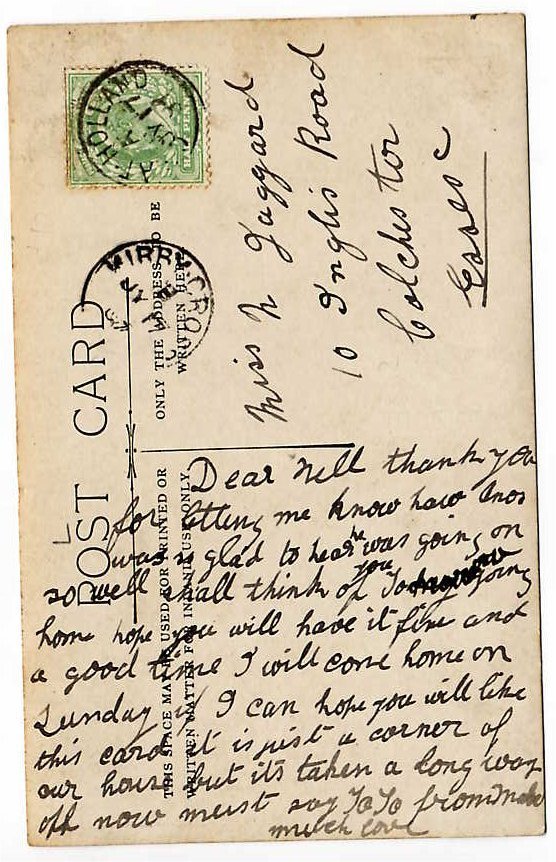 POST CARD
THIS SPACE MAY BE USED FOR PRINTED OR
WRITTEN MATTER FOR INLAND USE ONLY.
ONLY THE ADDRESS TO BE
WRITTEN HERE
HOLLAND
KIRBY CRO
HALFPENNY
Miss N Jaggard
10 Inglis Road
Colchester
Essex
Dear Nell thank you
for letting me know how
was is glad to hear he was going on
so well shall think of you going
home hope you will have it fine and
a good time I will come home on
Sunday if I can hope you will like
this card it is just a corner of
our house but its taken a long way
off now must say TaTa from
much love